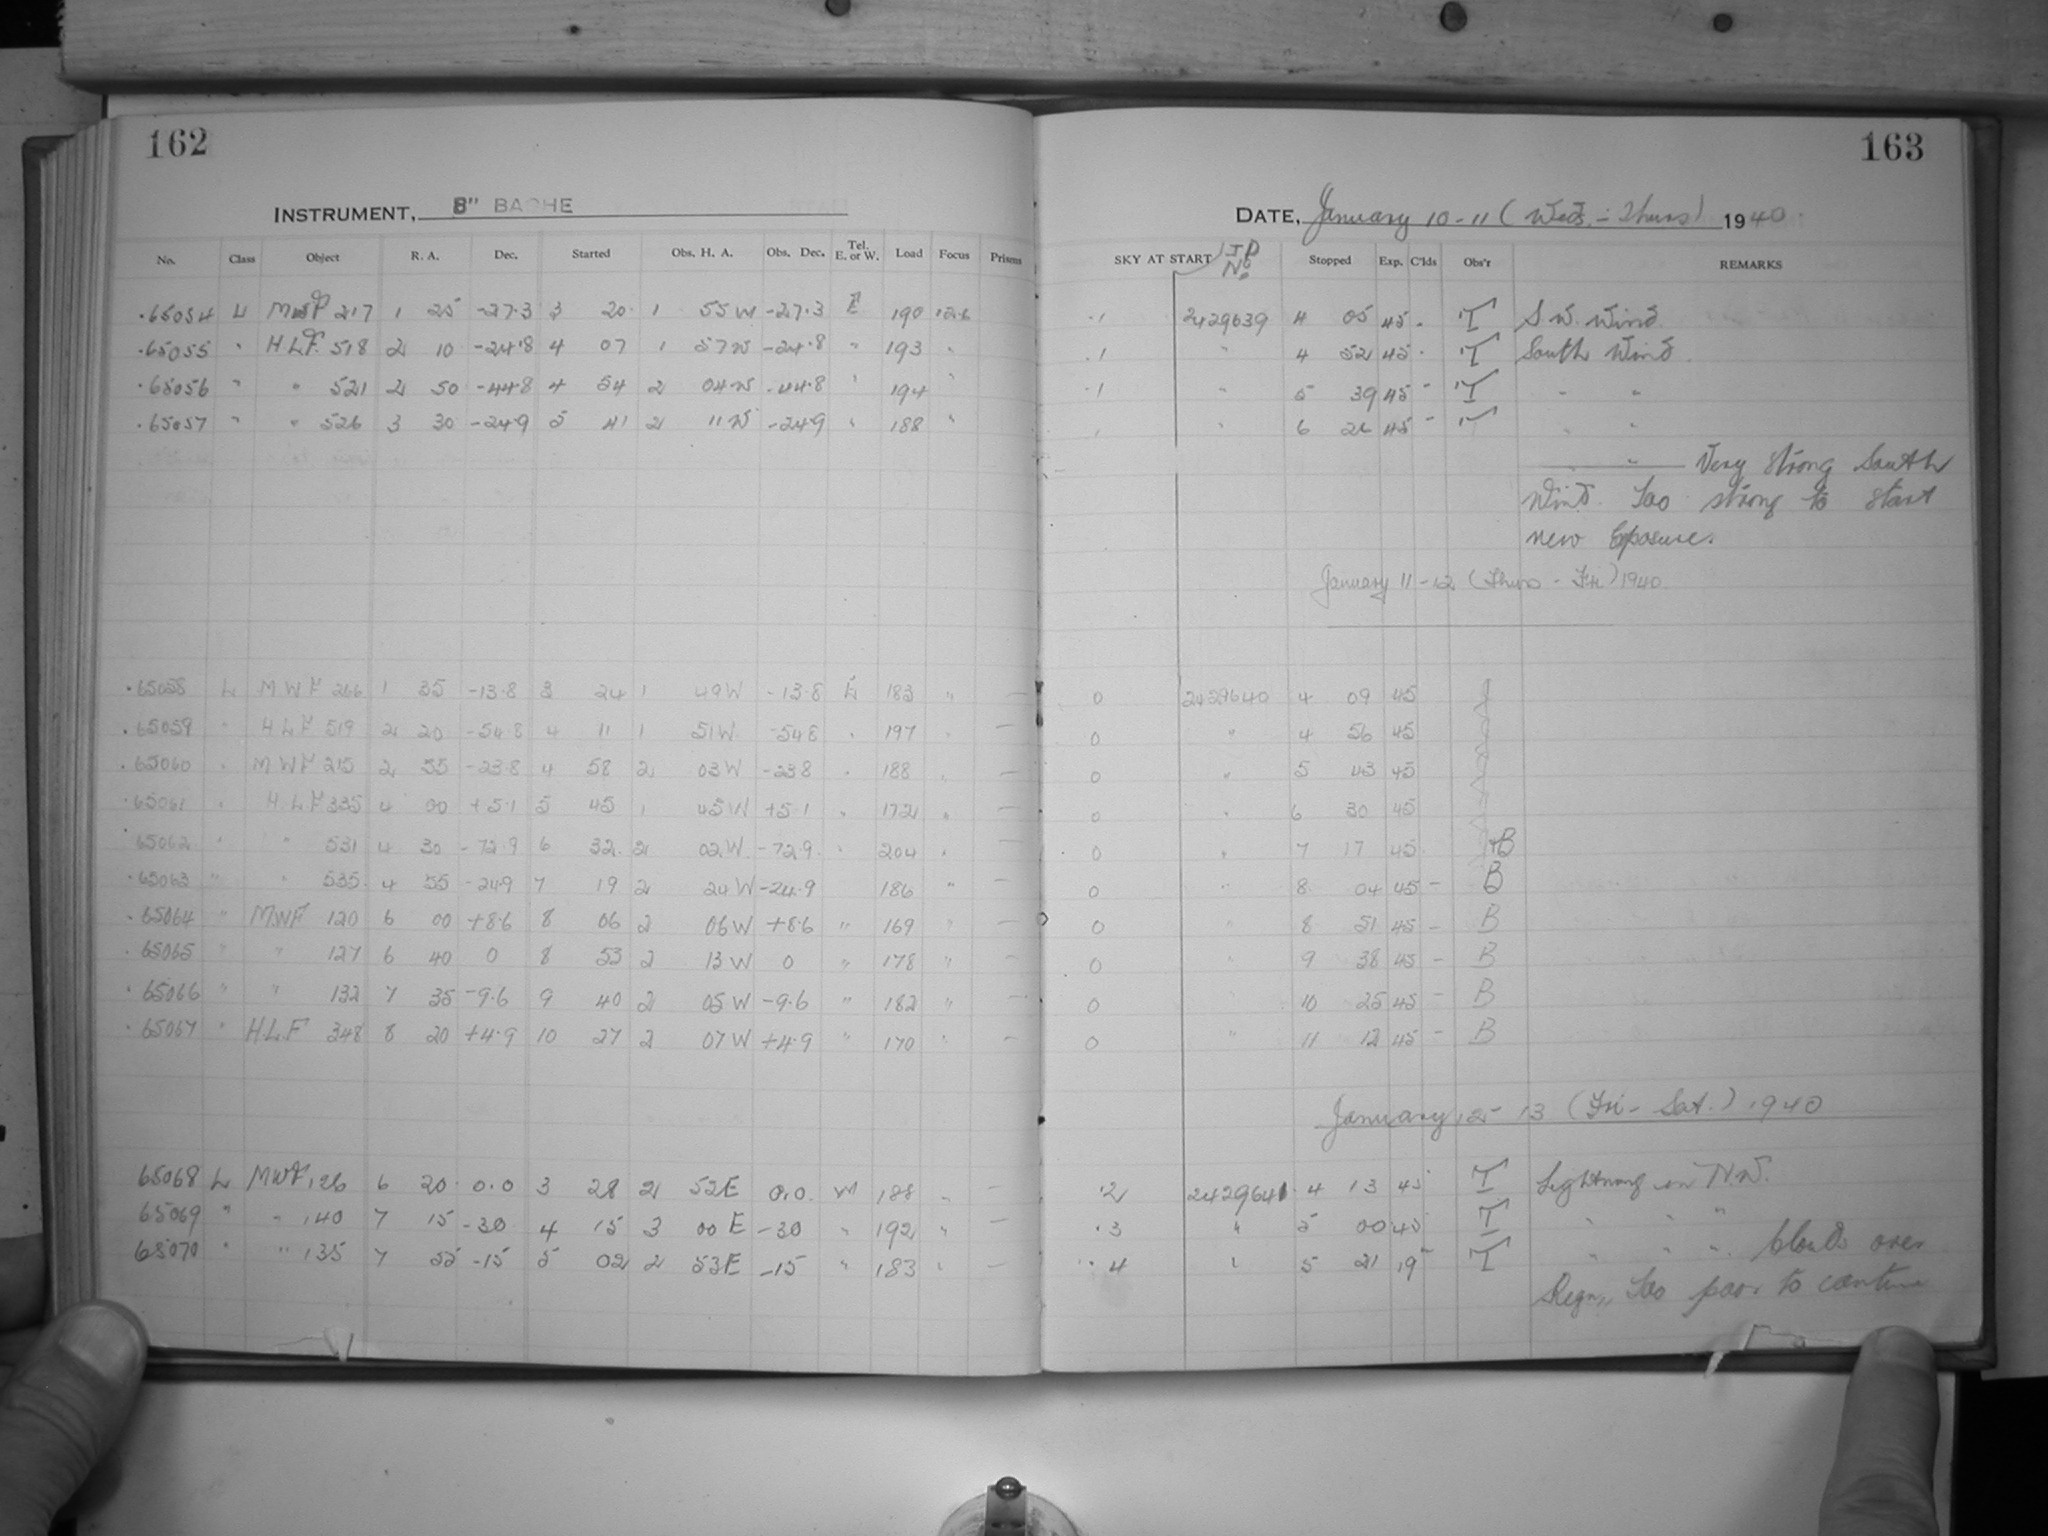 162
INSTRUMENT, 8" BACHE
No. Class Object R. A. Dec. Started Obs. H. A. Obs. Dec. Tel. E. or W. Load Focus Prisms
.65054 L MWF 217 1 25 -27.3 3 20 1 55 W -27.3 E 190 12.6
.65055 " H.L.F. 518 2 10 -24.8 4 07 1 57 W -24.8 " 193 "
.65056 " " 521 2 50 -44.8 4 54 2 04 W -44.8 " 194 "
.65057 " " 526 3 30 -24.9 5 41 2 11 W -24.9 " 188 "
.65058 L MWF 266 1 35 -13.8 3 24 1 49 W -13.8 E 183 " —
.65059 " HLF 519 2 20 -54.8 4 11 1 51 W -54.8 " 197 " —
.65060 " MWF 215 2 55 -23.8 4 58 2 03 W -23.8 " 188 " —
.65061 " HLF 335 4 00 +5.1 5 45 1 45 W +5.1 " 172 " —
.65062 " " 531 4 30 -72.9 6 32 2 02 W -72.9 " 204 " —
.65063 " " 535 4 55 -24.9 7 19 2 24 W -24.9 186 " —
.65064 " MWF 120 6 00 +8.6 8 06 2 06 W +8.6 " 169 " —
.65065 " " 127 6 40 0 8 53 2 13 W 0 " 178 " —
.65066 " " 132 7 35 -9.6 9 40 2 05 W -9.6 " 182 " —
.65067 " H.L.F 348 8 20 +4.9 10 27 2 07 W +4.9 " 170 " —
65068 L MWF 126 6 20 0.0 3 28 2 52 E 0.0 W 188 " —
65069 " " 140 7 15 -30 4 15 3 00 E -30 " 192 " —
65070 " " 135 7 55 -15 5 02 2 53 E -15 " 183 " —
163
DATE, January 10-11 (Wed. - Thurs) 1940.
SKY AT START J D No Stopped Exp. C'lds Obs'r REMARKS
.1 2429639 4 05 45 - T S W. Wind.
.1 " 4 52 45 - T South Wind.
.1 " 5 39 45 - T " "
" 6 26 45 - T " "
" Very strong South
Wind. Too strong to start
new Exposure.
January 11-12 (Thurs - Fri) 1940
0 2429640 4 09 45
0 " 4 56 45
0 " 5 43 45
0 " 6 30 45
0 " 7 17 45 B
0 " 8 04 45 - B
0 " 8 51 45 - B
0 " 9 38 45 - B
0 " 10 25 45 - B
0 " 11 12 45 - B
January 12-13 (Fri - Sat.) 1940
.2 2429641 4 13 45 T Lightning in N.W.
.3 " 5 00 45 T " " "
.4 " 5 21 19 T " " " Clouds over
Regn, Too poor to continue